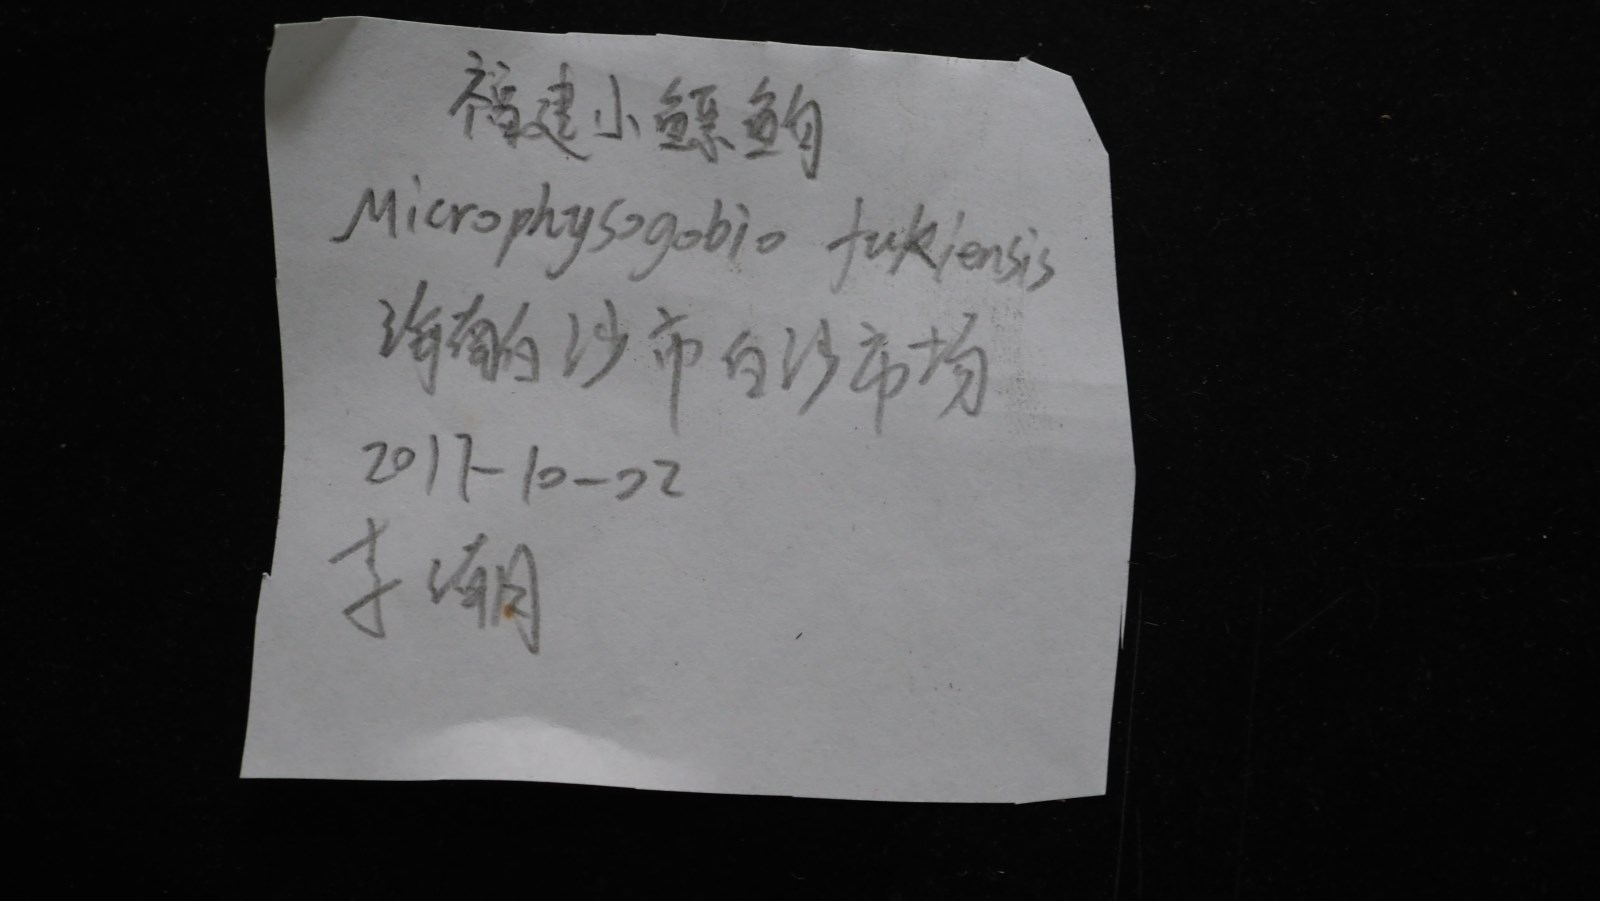 福建小鳔鮈
Microphysogobio fukiensis
海南白沙市白沙市场
2017-10-02
李潮